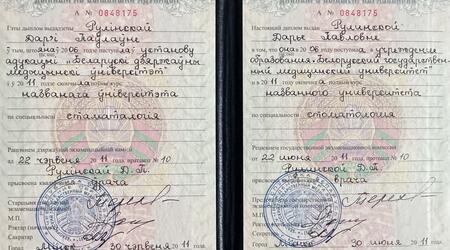 А № 0848175
Гэты дыплом выдадзены Рулінскай
Дар'і Паўлаўне
у тым, што яна у 2006 годзе паступіла ва установу
адукацыі „Беларускі дзяржаўны
медыцынскі ўніверсітэт"
і ў 2011 годзе скончыла поўны курс
названага ўніверсітэта
па спецыяльнасці
стаматалогія
Рашэннем дзяржаўнай экзаменацыйнай камісіі
ад 22 чэрвеня 2011 года, пратакол № 10
Рулінскай Д.П.
прысвоена кваліфікацыя врача
Старшыня дзяржаўнай
экзаменацыйнай камісіі
М.П.
Рэктар
Сакратар
Горад Мінск 30 чэрвеня 2011 г.
А № 0848175
Настоящий диплом выдан Рулинской
Дарье Павловне
в том, что она в 2006 году поступила в учреждение
образования „Белорусский государствен-
ный медицинский университет"
и в 2011 году окончила полный курс
названного университета
по специальности
стоматология
Решением государственной экзаменационной комиссии
от 22 июня 2011 года, протокол № 10
Рулинской Д.П.
присвоена квалификация врача
Председатель государственной
экзаменационной комиссии
М.П.
Ректор
Секретарь
Город Минск 30 июня 2011 г.